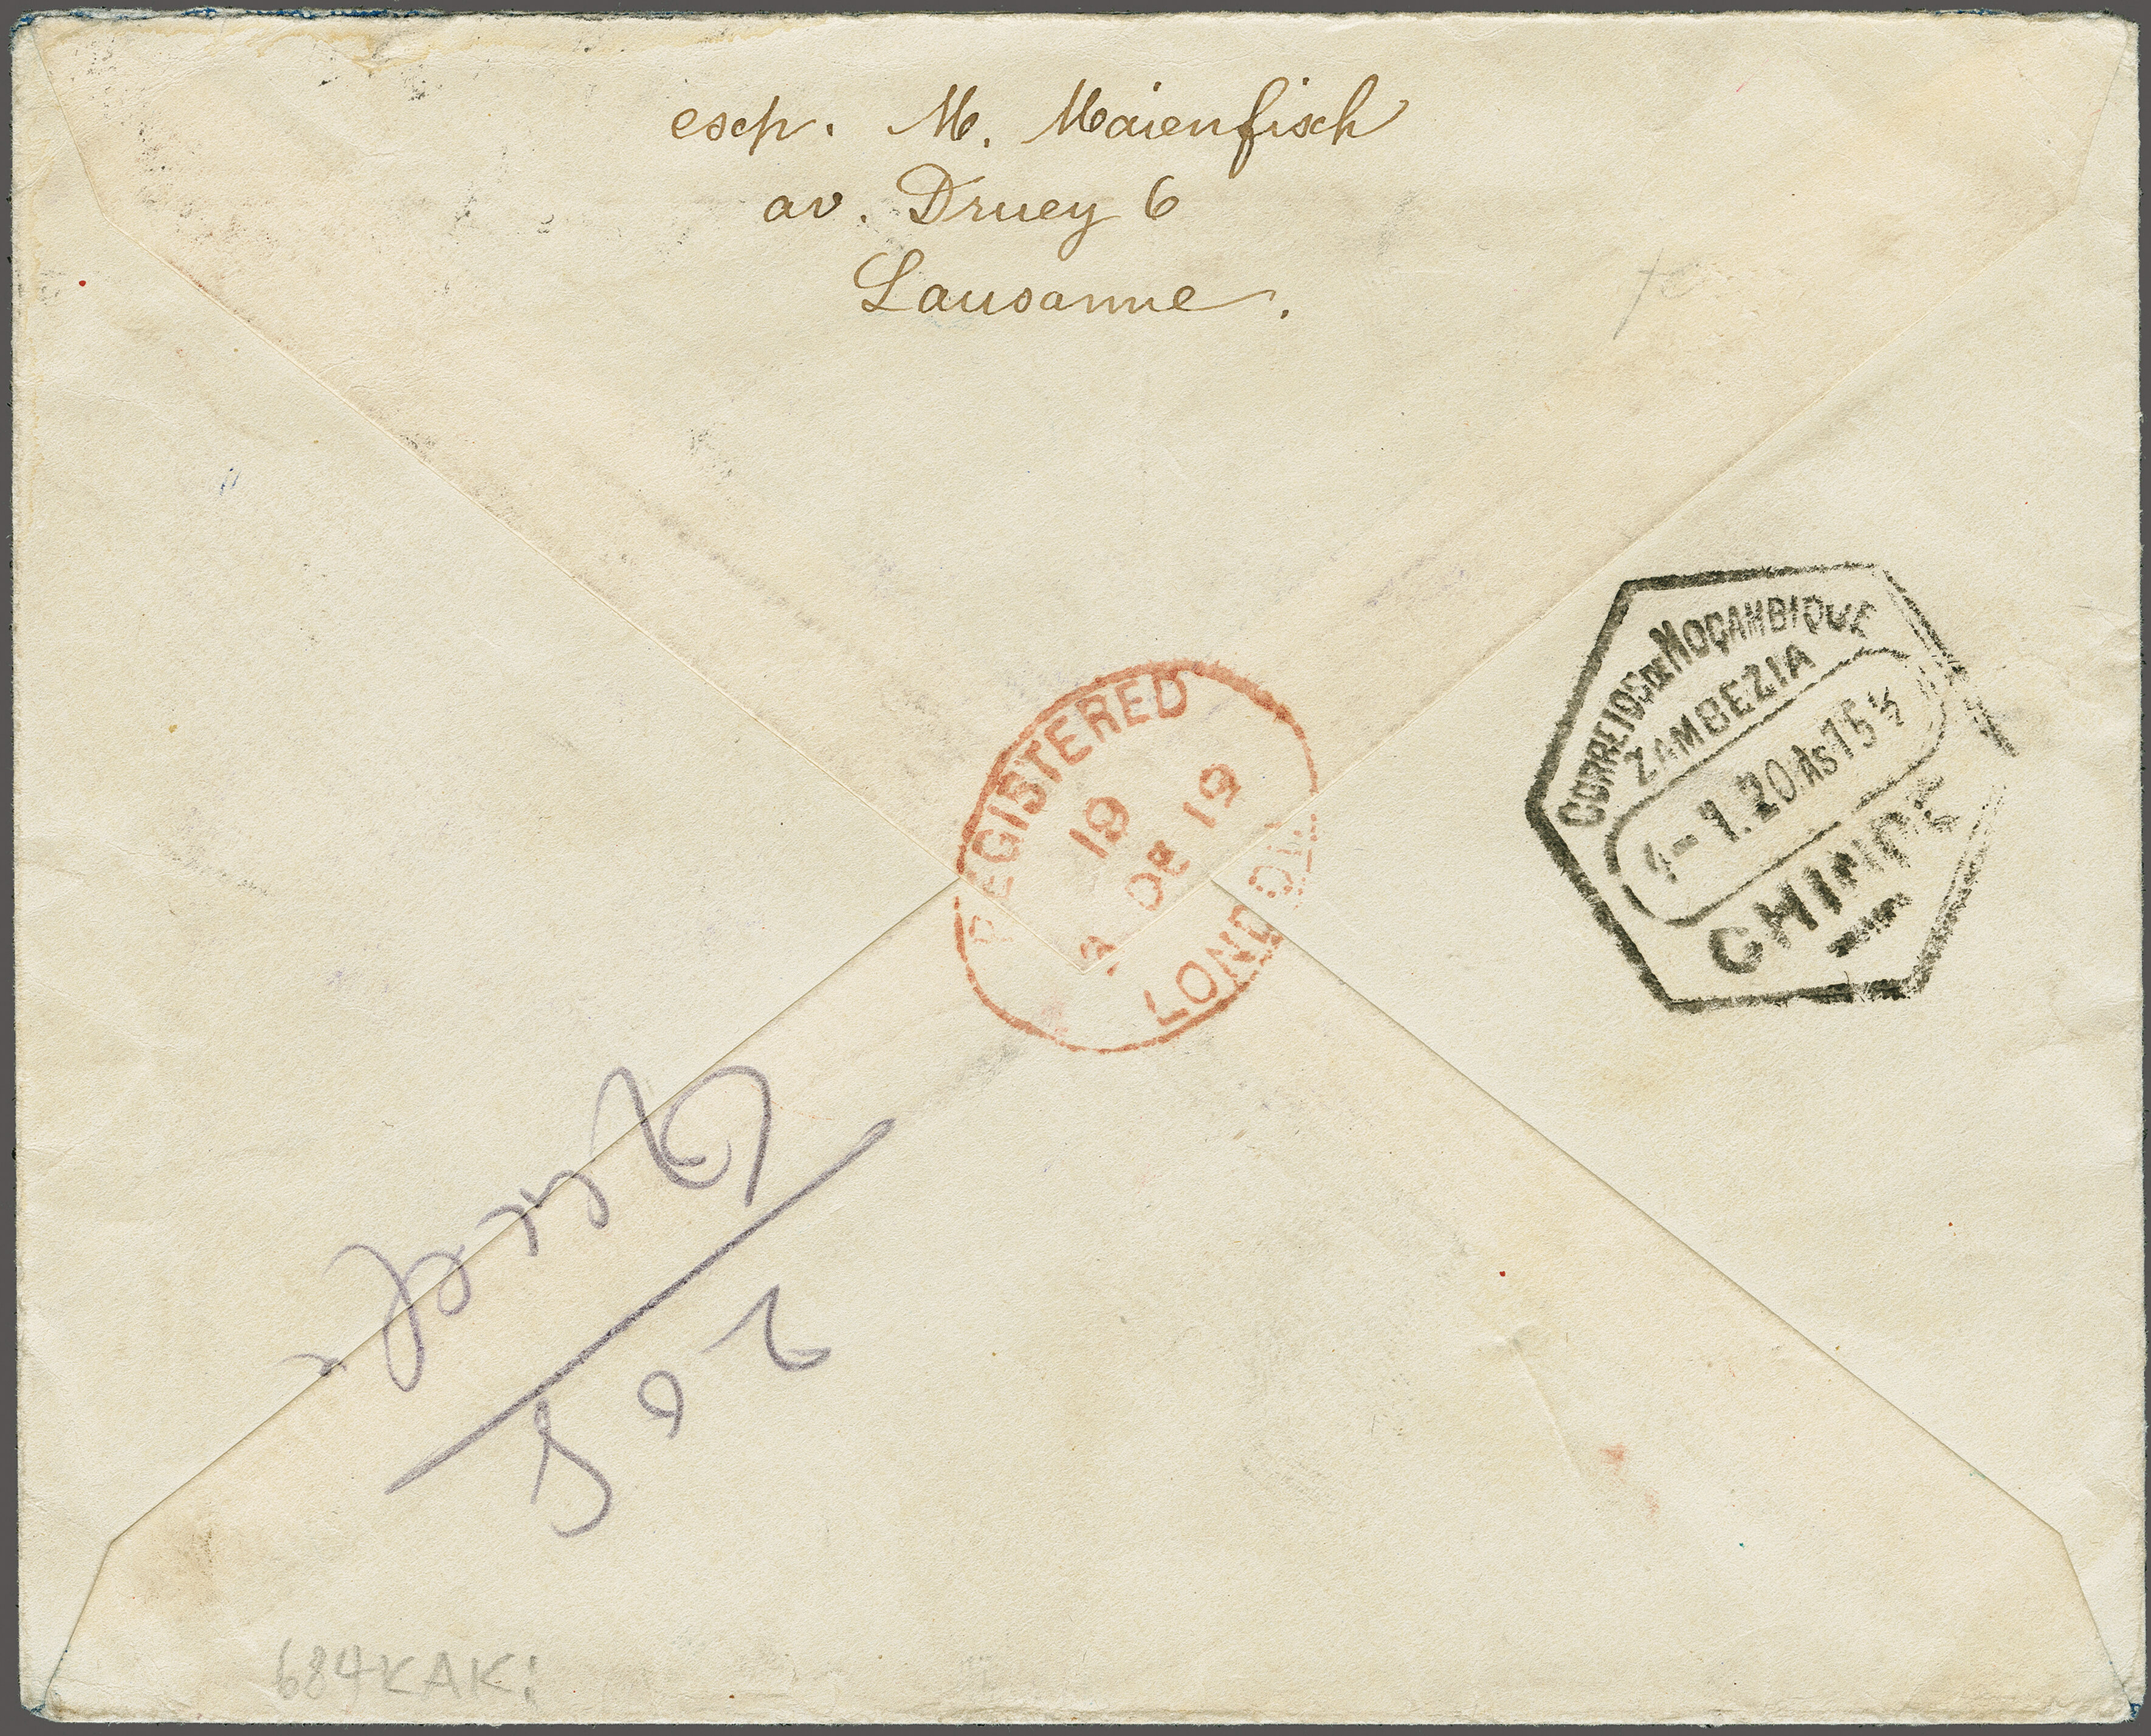 exp. M. Maienfisch
av. Druey 6
Lausanne.
REGISTERED
19
DE 19
LONDON
CORREIOS DE MOÇAMBIQUE
ZAMBEZIA
4-1.20 ÀS 15½
CHINDE
205
684KAK: